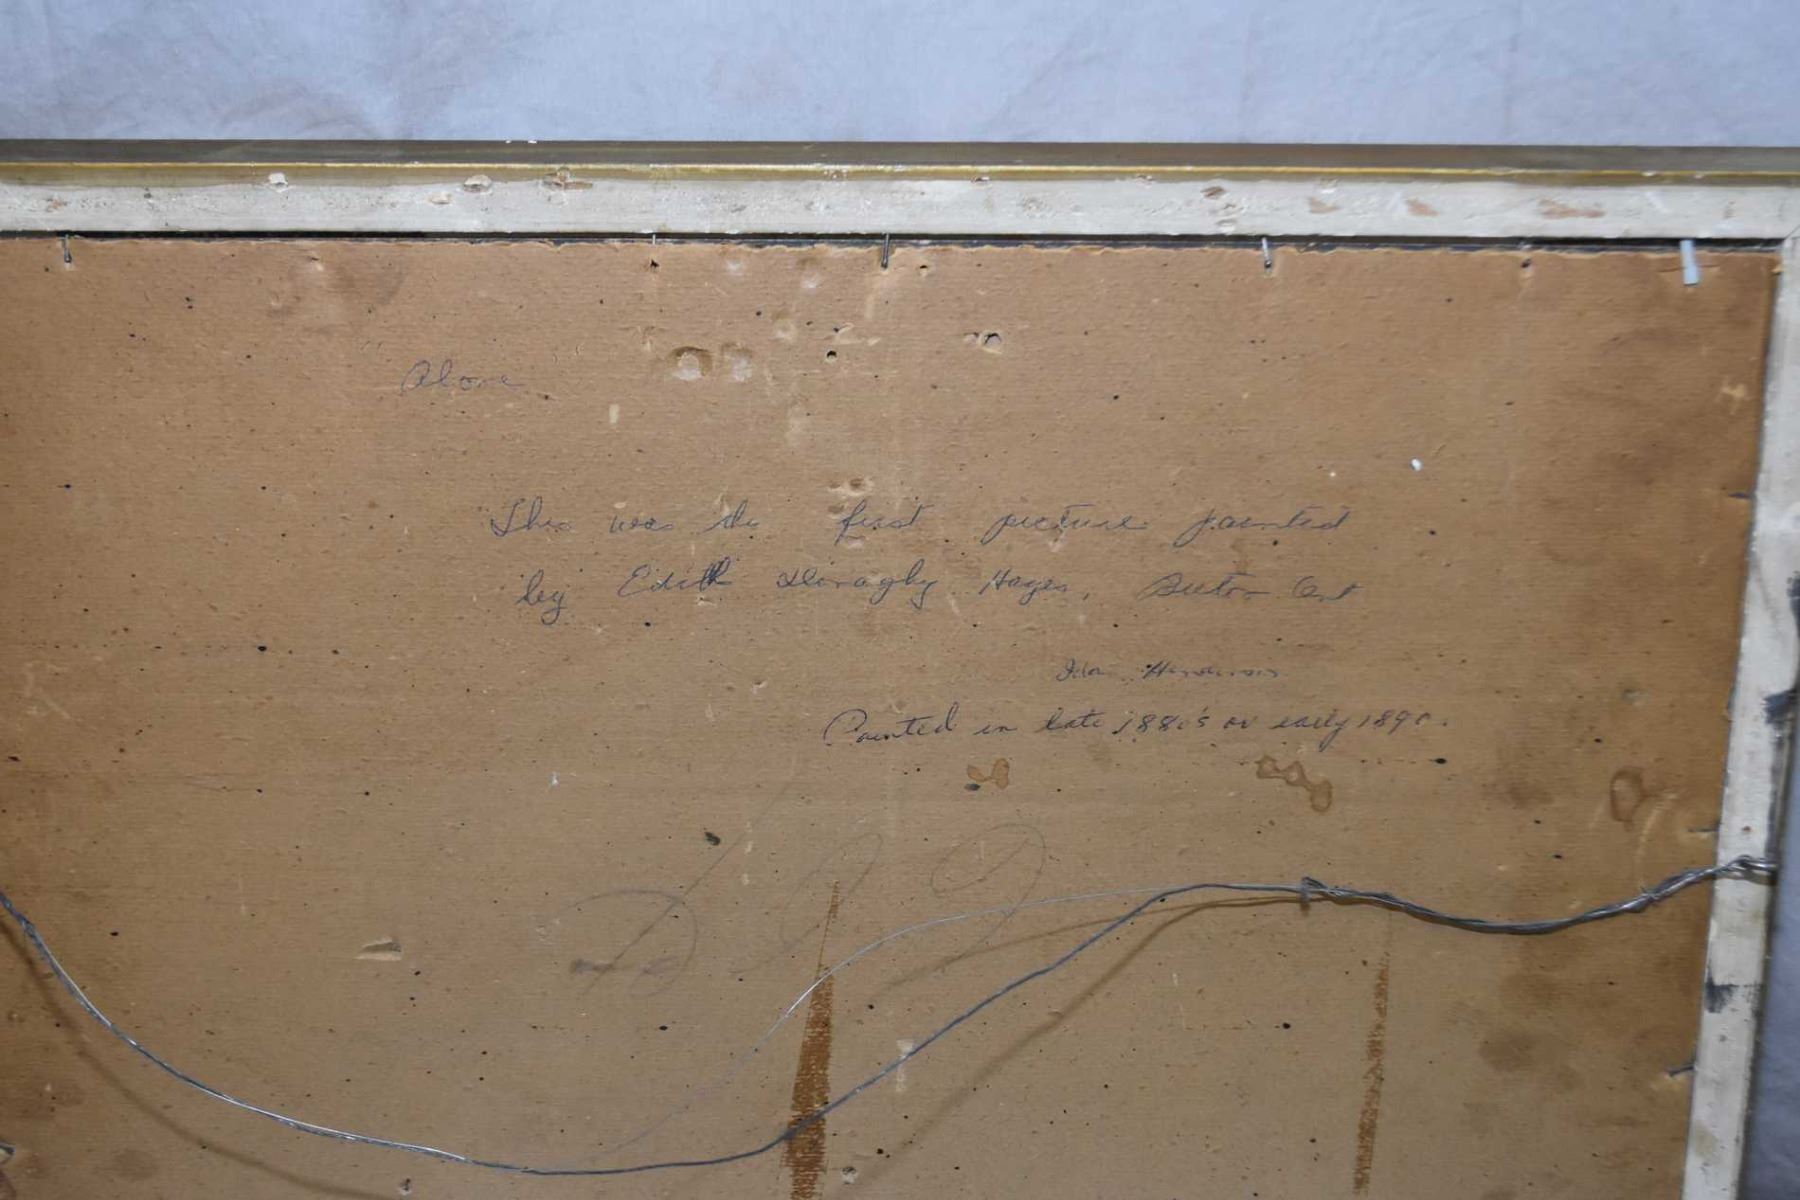 Alone
This was the first picture painted
by Edith Hayes, Sutton Ont
Ida Henderson
Painted in late 1880's or early 1890.